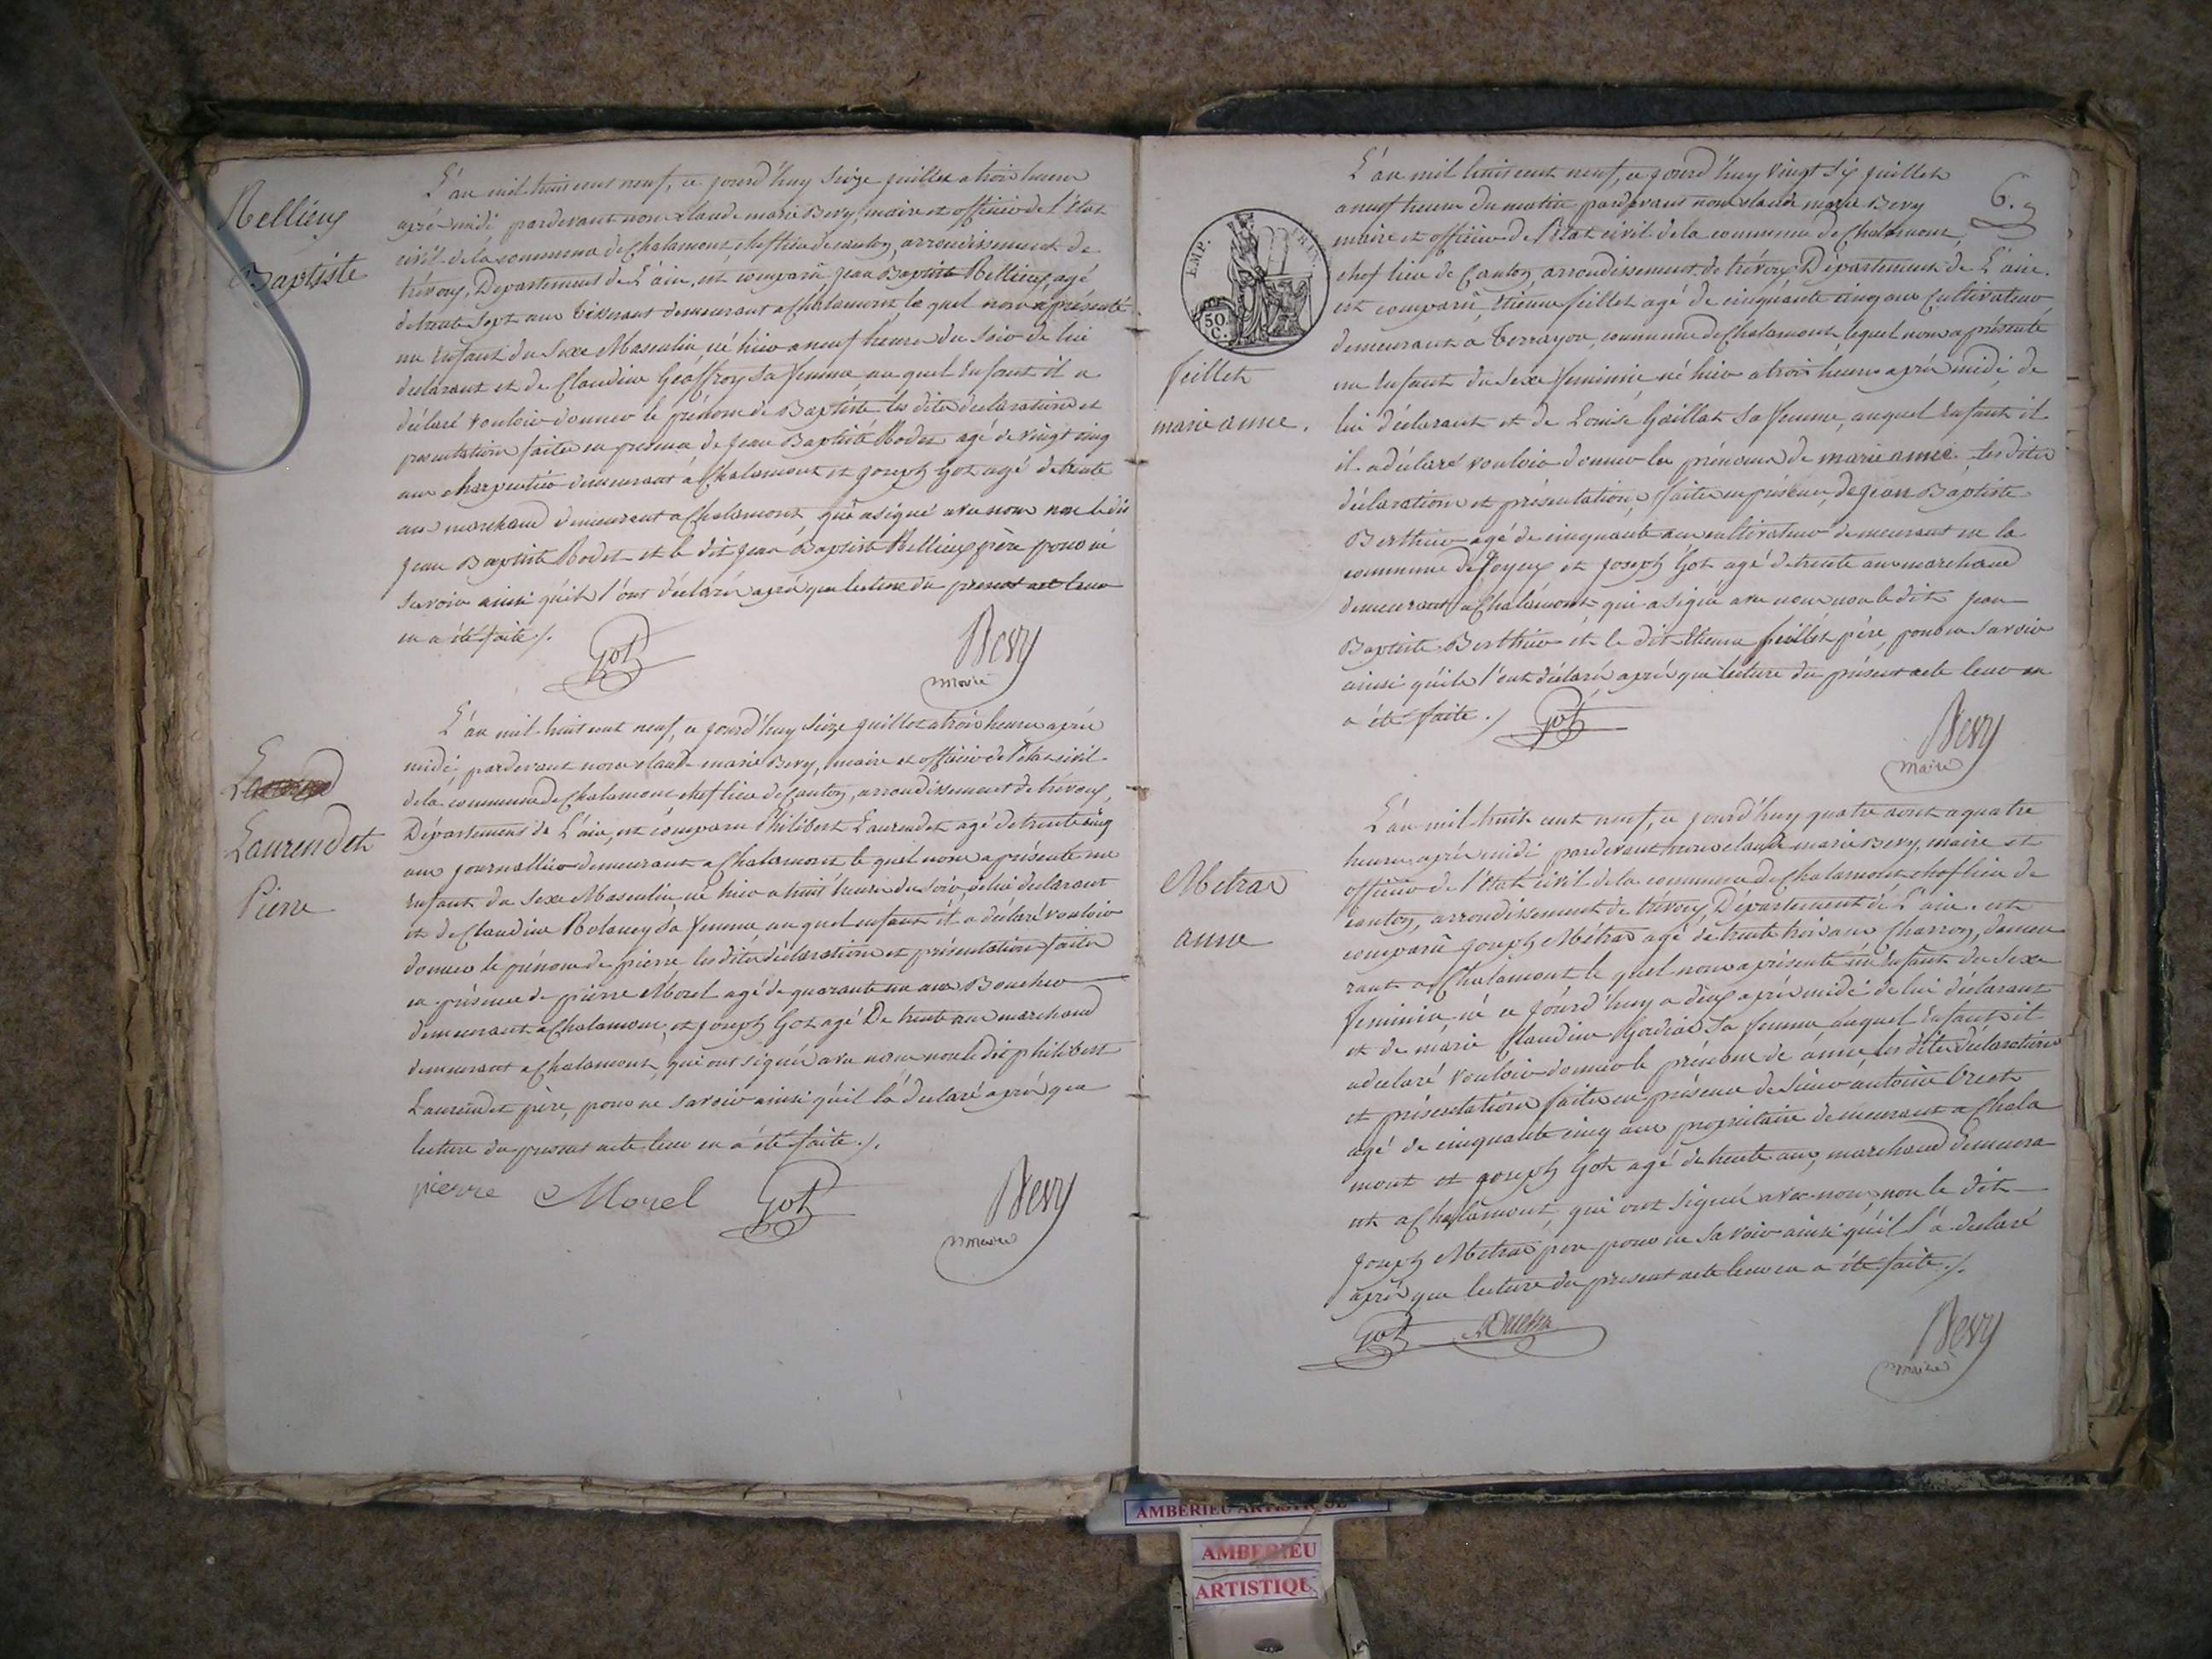 Rellieux
Baptiste
L'an mil huit cent neuf, ce jourd'huy seize juillet a trois heures
après midi pardevant nous claude marie Bevy, maire et officier de l'état
civil de la commune de Chalamont, chef lieu de canton, arrondissement de
trévoux, Departement de L'ain, est comparu jean Baptiste Rellieux, agé
de trente sept ans tisserant demeurant a Chalamont, le quel nous a présenté
un Enfant du sexe Masculin, né hier a neuf heures du soir de lui
declarant et de Claudine Geoffroy sa femme, au quel Enfant il a
déclaré vouloir donner le prénom de Baptiste les dites declaration et
presentation faites en presence de jean Baptiste Rodet agé de vingt cinq
ans charpentier demeurant a Chalamont et joseph Got agé de trente
ans marchand demeurant a Chalamont, qui a signé avec nous non le dit
jean Baptiste Rodet et le dit jean Baptiste Rellieux père pour ne
savoir ainsi qu'ils l'ont déclaré après que lecture du present acte leur
en a été faite ./.
Got
Bevy
maire
Laurendet
Pierre
L'an mil huit cent neuf, ce jourd'huy seize juillet a trois heures après
midi, pardevant nous claude marie Bevy, maire et officier de l'état civil
de la commune de Chalamont chef lieu de Canton, arrondissement de trévoux,
Département de L'ain, est comparu Philibert Laurendet agé de trente cinq
ans journallier demeurant a Chalamont le quel nous a présenté un
Enfant du sexe Masculin né hier a huit heures du soir, de lui declarant
et de Claudine Rolancy sa femme au quel enfant il a déclaré vouloir
donner le prénom de pierre les dites déclaration et présentation faites
en présence de pierre Morel agé de quarante un ans Boucher
demeurant a Chalamont, et joseph Got agé De trente ans marchand
demeurant a Chalamont, qui ont signé avec nous non le dit philibert
Laurendet père, pour ne savoir ainsi qu'il l'a declaré après que
lecture du present acte leur en a été faite ./.
pierre Morel Got
Bevy
maire
6.
EMP.
50
C.
feillet
marie anne.
L'an mil huit cent neuf, ce jourd'huy vingt six juillet
a neuf heures du matin pardevant nous claude marie Bevy
maire et officier de l'état civil de la commune de Chalamont,
chef lieu de Canton, arrondissement de trévoux Département de L'ain.
est comparû, Etienne feillet agé de cinquante cinq ans Cultivateur
demeurant a Terrayon, commune de Chalamont lequel nous a présenté
un Enfant du sexe feminin né hier a trois heures après midi, de
lui déclarant et de Louise Gaillat sa femme, auquel Enfant il
il a déclaré vouloir donner les prénoms de marie anne. Les dites
déclaration et présentation, faites en présence, de jean Baptiste
Berthier agé de cinquante ans cultivateur demeurant en la
commune de joyeux et joseph Got agé de trente ans marchand
demeurant a Chalamont qui a signé avec nous non le dit jean
Baptiste Berthier et le dit Etienne feillet père, pour ne savoir
ainsi qu'ils l'ont déclaré après que lecture du présent acte leur en
a été faite ./. Got
Bevy
maire
Metras
anne
L'an mil huit cent neuf, ce jourd'huy quatre aout a quatre
heures après midi pardevant nous claude marie Bevy, maire et
officier de l'état civil de la commune de Chalamont chef lieu de
canton, arrondissement de trévoux, Département de L'ain. est
comparû joseph Métras agé de trente trois ans Charron, demeu
rant a Chalamont, le quel nous a présenté un Enfant du sexe
feminin, né ce jourd'huy a deux après midi de lui déclarant
et de marie Claudine sa femme auquel Enfant il
a declaré vouloir donner le prénom de anne, les dites déclaration
et présentation faites en présence de sieur antoine
agé de cinquante cinq ans propriétaire demeurant a Chala
mont et joseph Got agé de trente ans, marchand demeura
nt a Chalamont, qui ont signé avec nous, non le dit
joseph Metras pere pour ne savoir ainsi qu'il l'a declaré
après que lecture du present acte leur en a été faite ./.
Got
Bevy
maire
AMBERIEU ARTISTIQUE
AMBERIEU
ARTISTIQU